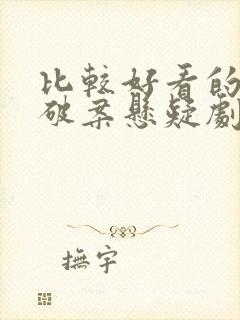 比較好看的
破案懸疑劇
撫宇